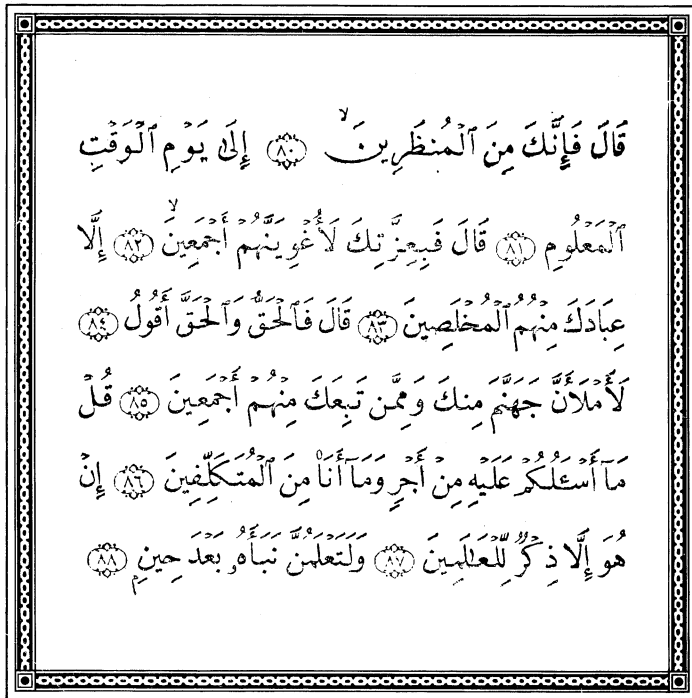 قَالَ فَإِنَّكَ مِنَ ٱلْمُنظَرِينَۙ ٨٠ إِلَىٰ يَوْمِ ٱلْوَقْتِ
ٱلْمَعْلُومِ ٨١ قَالَ فَبِعِزَّتِكَ لَأُغْوِيَنَّهُمْ أَجْمَعِينَۙ ٨٢ إِلَّا
عِبَادَكَ مِنْهُمُ ٱلْمُخْلَصِينَ ٨٣ قَالَ فَٱلْحَقُّ وَٱلْحَقَّ أَقُولُ ٨٤
لَأَمْلَأَنَّ جَهَنَّمَ مِنكَ وَمِمَّن تَبِعَكَ مِنْهُمْ أَجْمَعِينَ ٨٥ قُلْ
مَآ أَسْـَٔلُكُمْ عَلَيْهِ مِنْ أَجْرٍ وَمَآ أَنَا۠ مِنَ ٱلْمُتَكَلِّفِينَ ٨٦ إِنْ
هُوَ إِلَّا ذِكْرٌ لِّلْعَـٰلَمِينَ ٨٧ وَلَتَعْلَمُنَّ نَبَأَهُۥ بَعْدَ حِينِۭ ٨٨